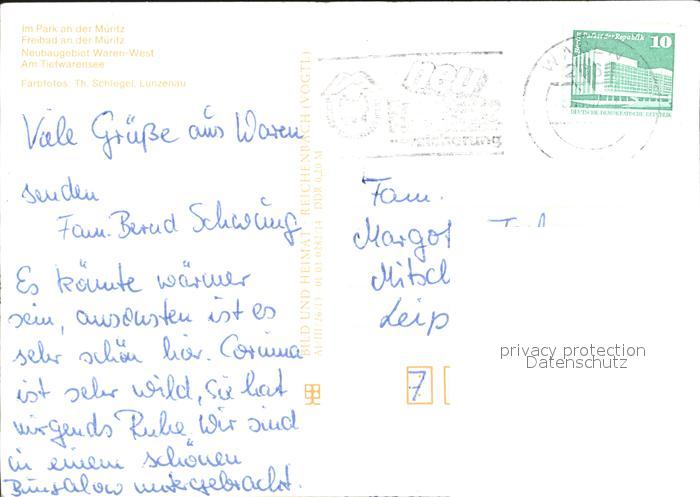 Im Park an der Müritz
Freibad an der Müritz
Neubaugebiet Waren-West
Am Tiefwarensee
Farbfotos: Th. Schlegel, Lunzenau
Viele Grüße aus Waren
senden
Fam. Bernd Schwüng
Es könnte wärmer
sein, ansonsten ist es
sehr schön hier. Corinna
ist sehr wild, Sie hat
nirgends Ruhe. Wir sind
in einem schönen
Bungalow untergebracht.
BILD UND HEIMAT REICHENBACH (VOGTL)
A1/III/26/13 01 03 0282/14 DDR 0,20 M
neu
10
Palast der Republik
DEUTSCHE DEMOKRATISCHE REPUBLIK
Fam.
Margot
Mitsch
Leip
7
privacy protection
Datenschutz